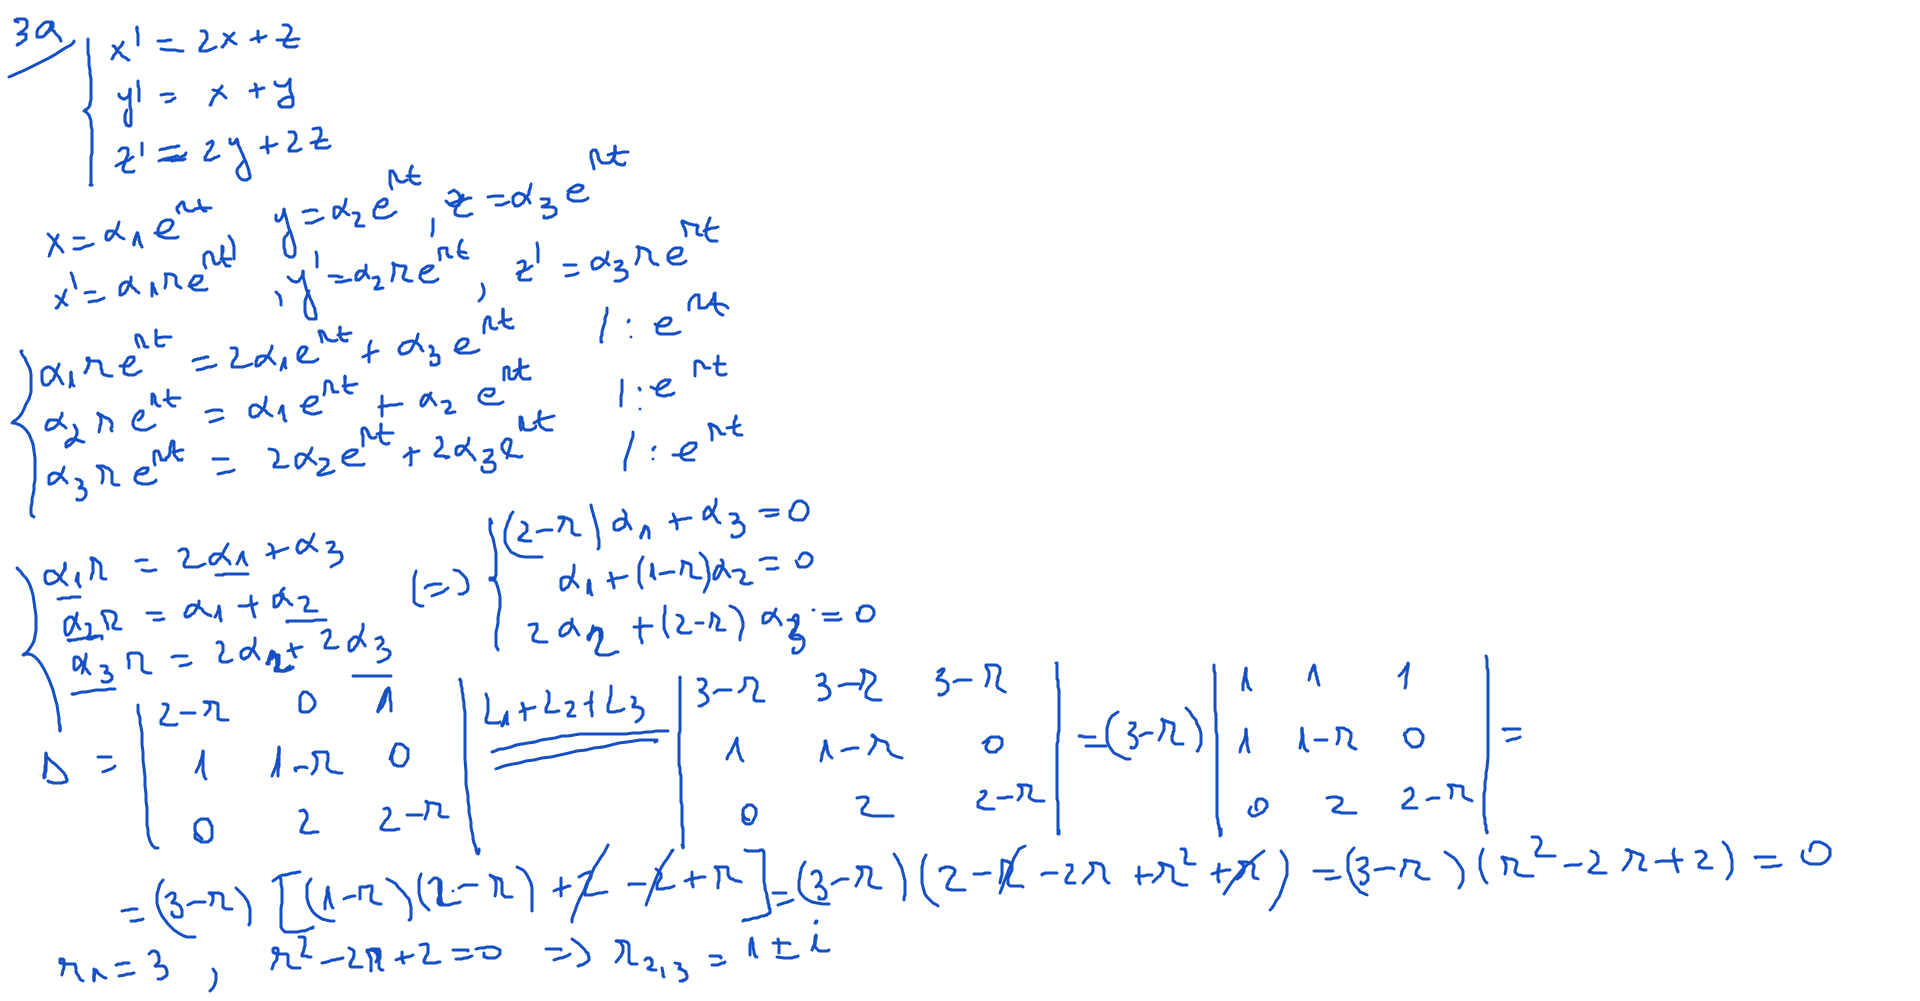 3a
x' = 2x + z
y' = x + y
z' = 2y + 2z
x = α₁e^{rt}, y = α₂e^{rt}, z = α₃e^{rt}
x' = α₁re^{rt}, y' = α₂re^{rt}, z' = α₃re^{rt}
α₁re^{rt} = 2α₁e^{rt} + α₃e^{rt} /: e^{rt}
α₂re^{rt} = α₁e^{rt} + α₂e^{rt} |: e^{rt}
α₃re^{rt} = 2α₂e^{rt} + 2α₃e^{rt} /: e^{rt}
α₁r = 2α₁ + α₃ (=) (2-r)α₁ + α₃ = 0
α₂r = α₁ + α₂ α₁ + (1-r)α₂ = 0
α₃r = 2α₂ + 2α₃ 2α₂ + (2-r)α₃ = 0
Δ = |2-r 0 1; 1 1-r 0; 0 2 2-r| L₁+L₂+L₃ |3-r 3-r 3-r; 1 1-r 0; 0 2 2-r| = (3-r) |1 1 1; 1 1-r 0; 0 2 2-r| =
= (3-r) [(1-r)(2-r) + 2 - 2 + r] = (3-r)(2 - r - 2r + r² + r) = (3-r)(r² - 2r + 2) = 0
r₁ = 3, r² - 2r + 2 = 0 => r₂,₃ = 1 ± i